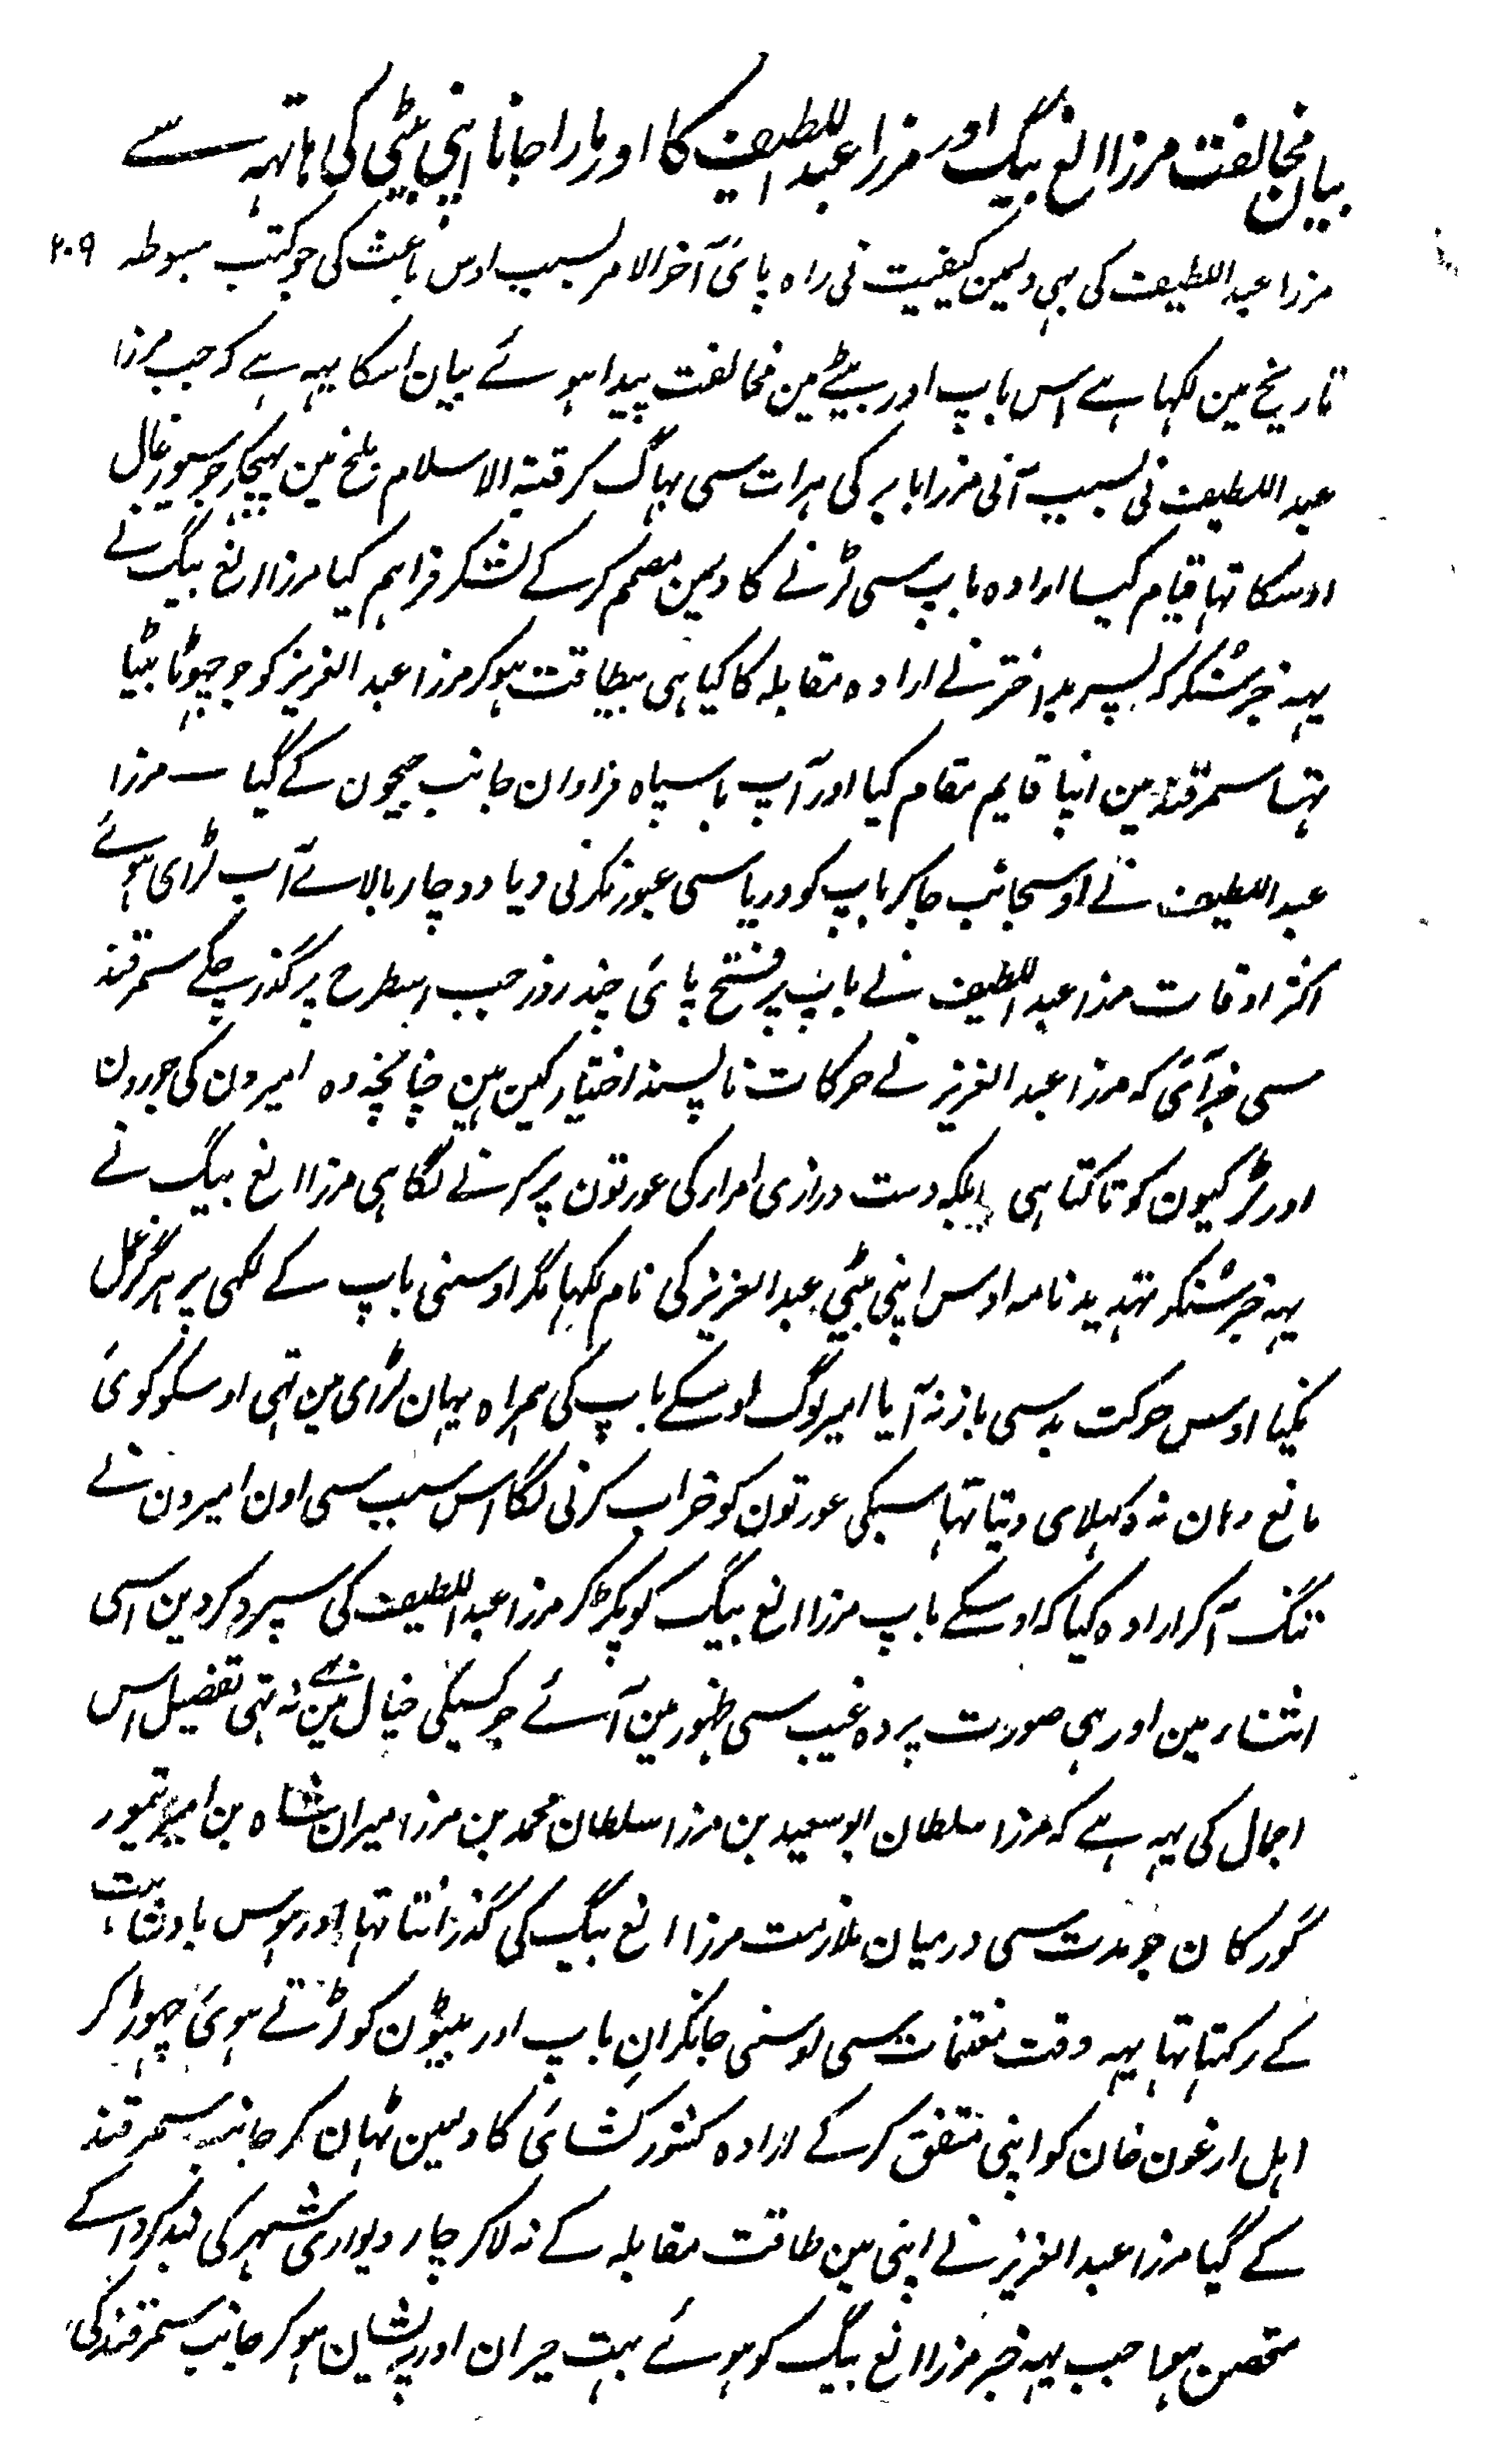 بیان مخالفت مرزا الغ بیگ اور مرزا عبد اللطیف کا اور مارا جانا اپنی بیٹی کی ہاتہہ سے
مرزا عبد اللطیف کی بہی دلمین کیفیت نی راہ پائی آخر الامر بسبب اوس باعث کی جو کتب مبسوطہ ۲۰۹
تاریخ مین لکہا ہے اس باپ اور بیٹے مین مخالفت پیدا ہوئے بیان اسکا یہہ ہے کہ جب مرزا
عبد اللطیف نی بسبب آنی مرزا بابر کی ہرات سی بہاگ کر قبۃ الاسلام بلخ مین پہنچکر جو سیورغال
اوسکا تہا قیام کیسا ارادہ باپ سی لڑنے کا دلمین مصمم کر کے لشکر فراہم کیا مرزا الغ بیگ نے
یہہ خبر سُنکر کہ پسر بد اختر نے ارادہ مقابلہ کا کیا ہی بیطاقت ہوکر مرزا عبد العزیز کو جو چہوٹا بیٹا
تہا سمرقند مین اپنا قایم مقام کیا اور آپ با سپاہ فراوان جانب جیحون کے گیا — مرزا
عبد اللطیف نے اوسجانب جاکر باپ کو دریا سی عبور نکرنی دیا دو چار بالائے آب لڑای ہوئے
اکثر اوقات مرزا عبد اللطیف نے باپ پر فتح پائی چند روز جب اسطرح پر گذر چکے سمرقند
سی خبر آئی کہ مرزا عبد العزیز نے حرکات ناپسند اختیار کین ہین چنانچہ وہ امیرون کی جوروون
اور لڑکیون کو تاکتا ہی بلکہ دست درازی امرار کی عورتون پر کرنے لگا ہی مرزا الغ بیگ نے
یہہ خبر سُنکر تہدید نامہ اوس اپنی بیٹی عبد العزیز کی نام لکہا مگر اوسنی باپ کے لکہی پر ہرگز عمل
نکیا اوس حرکت بد سی باز نہ آیا امیر لوگ اوسکے باپ کی ہمراہ یہان لڑای مین تہی اوسکو کوئی
مانع وہان نہ دکہلای دیتا تہا سبکی عورتون کو خراب کرنی لگا اس سبب سی اون امیرون نے
تنگ آکر ارادہ کیا کہ اوسکے باپ مرزا الغ بیگ کو پکڑ کر مرزا عبد اللطیف کی سپرد کر دین اسی
اثنار مین اور ہی صورت پردہ غیب سی ظہور مین آئے جو کسیکی خیال مین بہی نہ تہی تفصیل اس
اجمال کی یہہ ہے کہ مرزا سلطان ابو سعید بن مرزا سلطان محمد بن مرزا میران شاہ بن امیر تیمور
گورکان جو مدت سی درمیان ملازمت مرزا الغ بیگ کی گذرانتا تہا اور ہوس بادشاہت
کے رکہتا تہا یہہ وقت مغتنمات سی اوسنی جانکر ان باپ اور بیٹون کو لڑتے ہوئی چہوڑ کر
اہل ارغون خان کو اپنی متفق کر کے ارادہ کشور کشائی کا دلمین ٹہان کر جانب سمرقند
کے گیا مرزا عبد العزیز نے اپنی مین طاقت مقابلہ کے نہ لاکر چار دیواری شہر کی بند کروا کے
متحصن ہوا جب یہہ خبر مرزا الغ بیگ کو ہوئے بہت حیران اور پریشان ہو کر جانب سمرقند کی